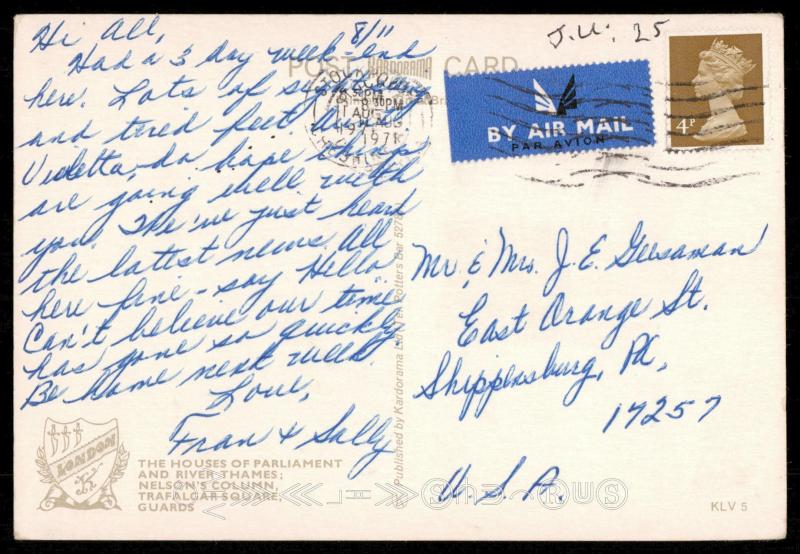 Hi All, 8/11
Had a 3 day week-end
here. Lots of
and tired feet.
Violetta, do hope
are going well with
you. We've just heard
the lattest news. All
here fine - say Hello
Can't believe our time
has gone so quickly.
Be home next week.
Love,
Fran & Sally
LONDON
THE HOUSES OF PARLIAMENT
AND RIVER THAMES;
NELSON'S COLUMN,
TRAFALGAR SQUARE,
GUARDS
POST CARD
KARDORAMA
Published by Kardorama Ltd., Potters Bar 5278
AUG
1971
J.U. 25
BY AIR MAIL
PAR AVION
4P
Mr. & Mrs. J. E. Geesaman
East Orange St.
Shippensburg, Pa.
17257
U.S.A.
KLV 5